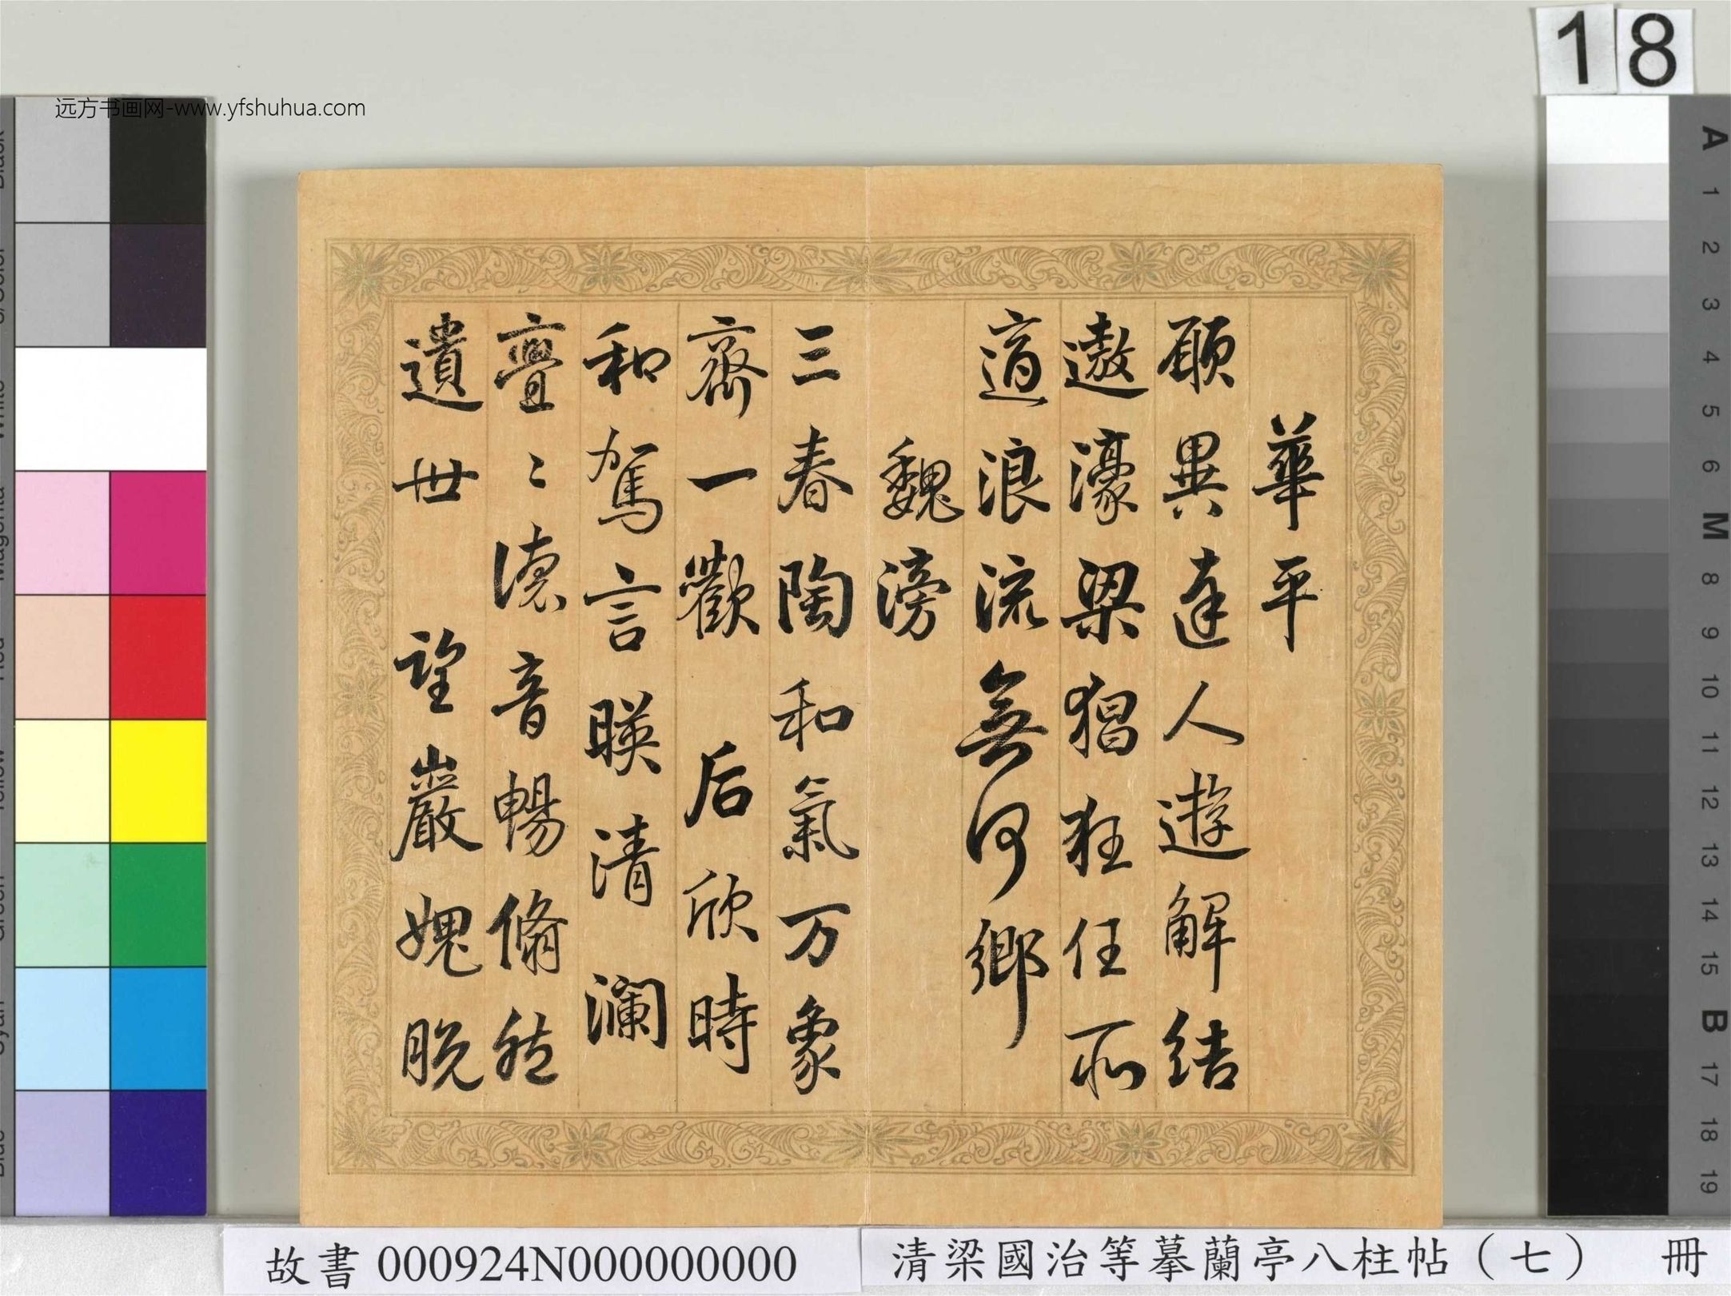 18
远方书画网-www.yfshuhua.com
華平
願異達人遊解結
遨濠梁猖狂任所
適浪流無何鄉
魏滂
三春陶和氣万象
齊一歡 后欣時
和駕言暎清 瀾
亹〻德音暢翛然
遺世 望巖媿脫
A
1
2
3
4
5
6
M
8
9
10
11
12
13
14
15
B
17
18
19
故書 000924N000000000
清梁國治等摹蘭亭八柱帖(七) 冊